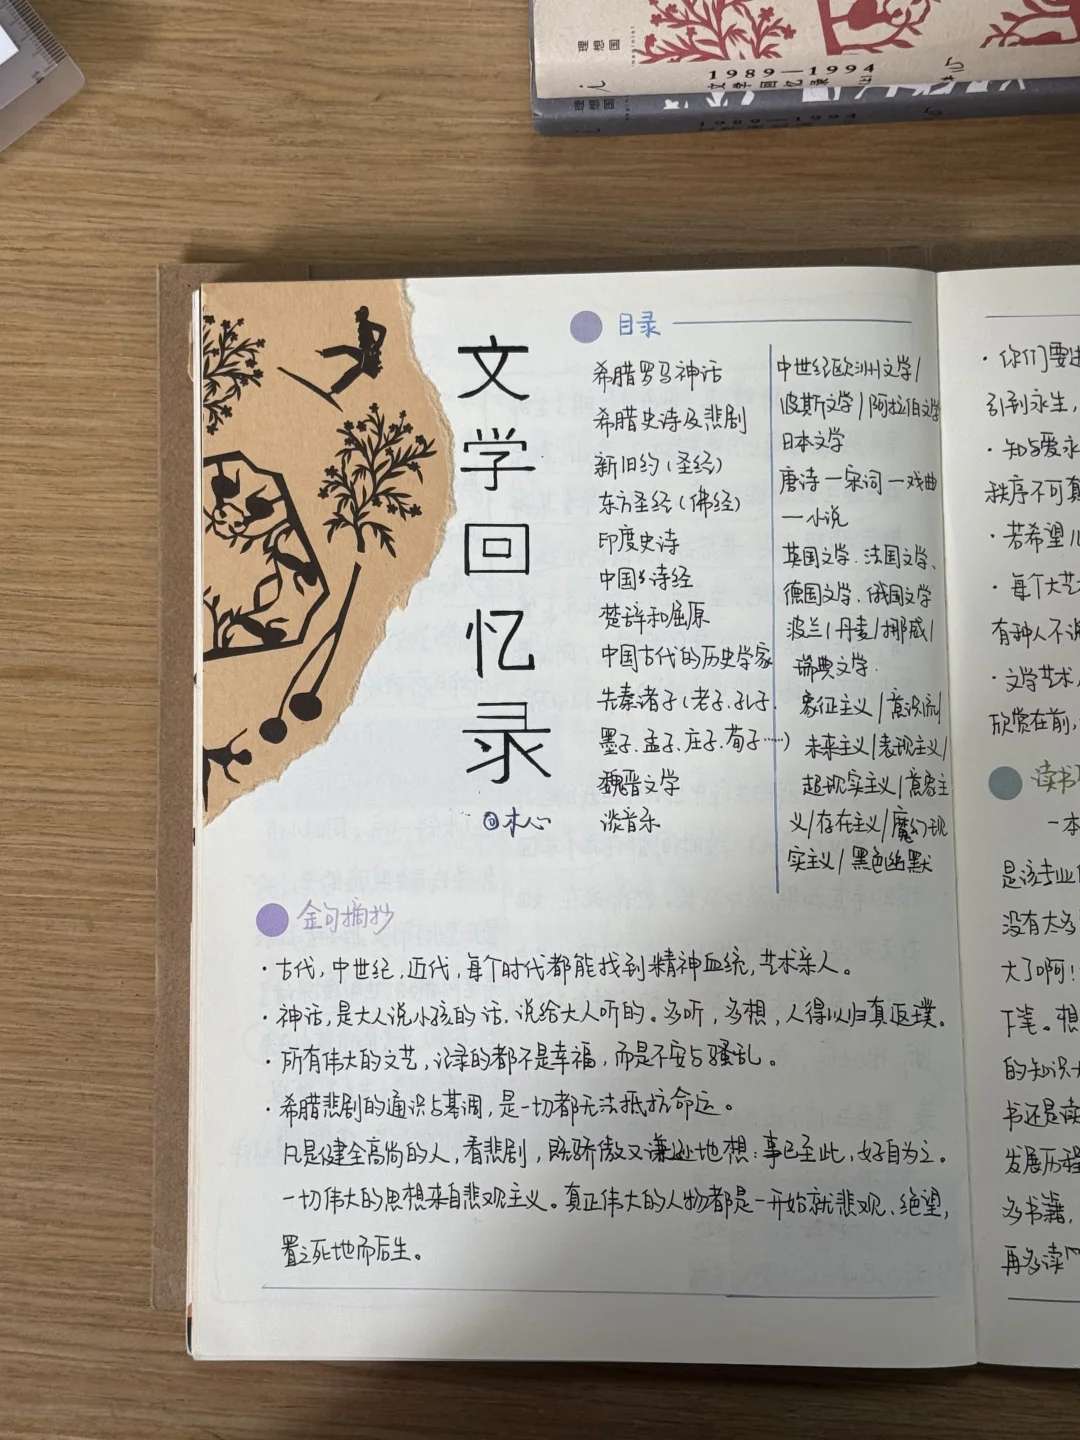 理想国
1989—1994
文学回忆录
理想国
1989—1994
文学回忆录
@木心
目录
希腊罗马神话
希腊史诗及悲剧
新旧约(圣经)
东方圣经(佛经)
印度史诗
中国诗经
楚辞和屈原
中国古代的历史学家
先秦诸子(老子.孔子.
墨子.孟子.庄子.荀子……)
魏晋文学
谈音乐
中世纪欧洲文学/
波斯文学/阿拉伯文学
日本文学
唐诗—宋词—戏曲
—小说
英国文学.法国文学、
德国文学.俄国文学
波兰/丹麦/挪威/
瑞典文学.
象征主义/意识流/
未来主义/表现主义/
超现实主义/意象主
义/存在主义/魔幻现
实主义/黑色幽默
金句摘抄
·古代,中世纪,近代,每个时代都能找到精神血统,艺术亲人。
·神话,是大人说小孩的话,说给大人听的。多听,多想,人得以归真返璞。
·所有伟大的文艺,记录的都不是幸福,而是不安与骚乱。
·希腊悲剧的通识与基调,是一切都无法抵抗命运。
凡是健全高尚的人,看悲剧,既骄傲又谦逊地想:事已至此,好自为之。
一切伟大的思想来自悲观主义。真正伟大的人物都是一开始就悲观、绝望,
置之死地而后生。
·你们要
引到永生,
·知与爱永
秩序不可
·若希望
·每个大艺
有种人不
·文学艺术
欣赏在前,
读书
一本
是该专业
没有太多
大了啊!
下笔。想
的知识
书还是读
发展历程
多书籍,
再多读